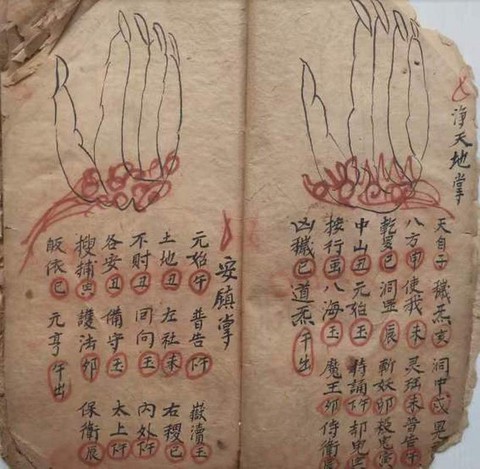 净天地掌
天自子 穢炁亥 洞中戌 晃
八方申 使我未 灵 未 普告午
乾罡巳 洞罡辰 斬妖卯 殺鬼寅
中山丑 元始玉 持誦下午 却鬼
按行寅 八海玉 魔王卯 侍衛辰
凶穢巳 道炁午出
安鎮掌
元始午 普告下午 嶽瀆玉
土地丑 左社未 右稷巳
不时丑 回向玉 内外下午
各安丑 備守玉 太上下午
搜捕寅 護法卯 保衛辰
皈依巳 元亨午出